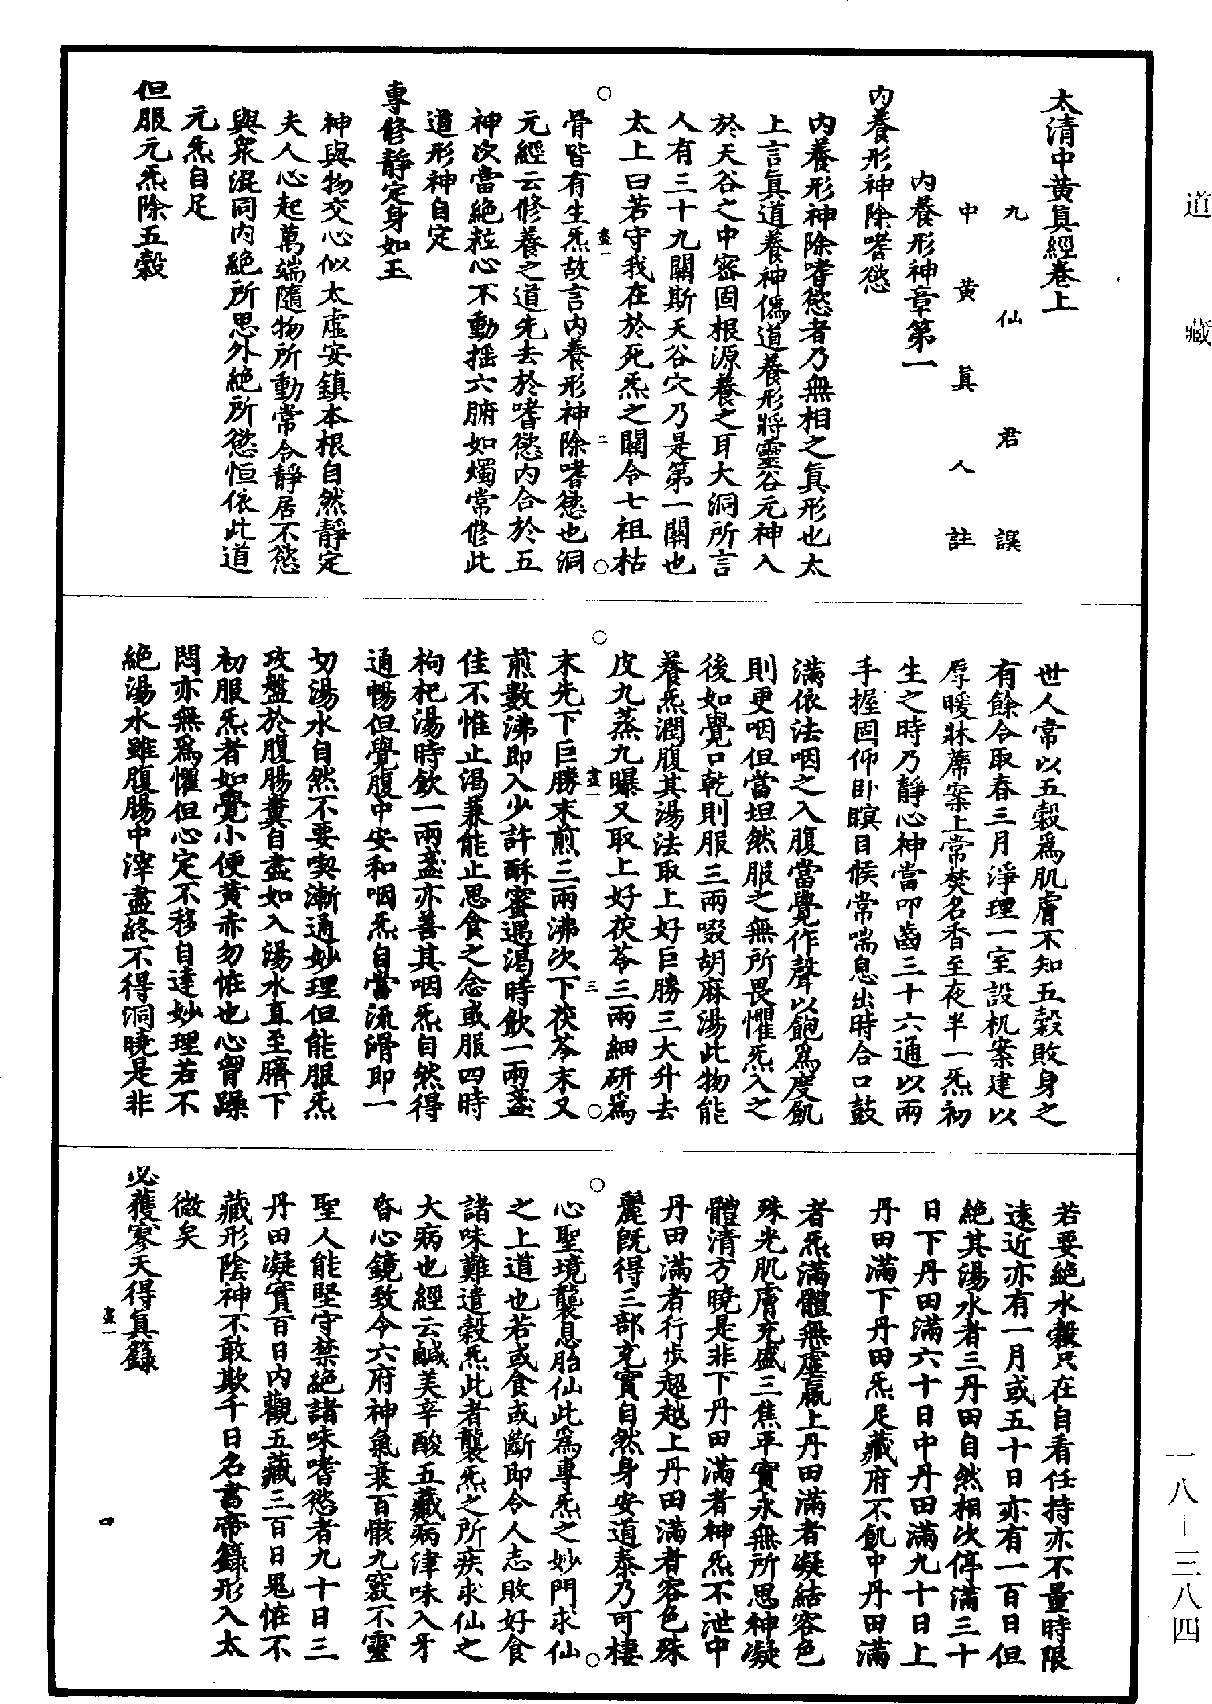 道藏
太清中黃真經卷上
九仙君譔
中黃真人註
內養形神章第一
內養形神除嗜慾
內養形神除嗜慾者乃無相之真形也太
上言真道養神偽道養形將靈谷元神入
於天谷之中密固根源養之耳大洞所言
人有三十九關斯天谷穴乃是第一關也
太上曰若守我在於死炁之關令七祖枯
骨皆有生炁故言內養形神除嗜慾也洞
元經云修養之道先去於嗜慾內合於五
神次當絕粒心不動搖六腑如燭常修此
道形神自定
專修靜定身如玉
神與物交心似太虛安鎮本根自然靜定
夫人心起萬端隨物所動常令靜居不慾
與眾混同內絕所思外絕所慾恒依此道
元炁自足
但服元炁除五穀
世人常以五穀為肌膚不知五穀敗身之
有餘今取春三月淨理一室設机案建以
厚暖牀蓆案上常焚名香至夜半一炁初
生之時乃靜心神當叩齒三十六通以兩
手握固仰臥瞑目候常喘息出時合口鼓
滿依法咽之入腹當覺作聲以飽為度飢
則更咽但當坦然服之無所畏懼炁入之
後如覺口乾則服三兩啜胡麻湯此物能
養炁潤腹其湯法取上好巨勝三大升去
皮九蒸九曝又取上好茯苓三兩細研為
末先下巨勝末煎三兩沸次下茯苓末又
煎數沸即入少許酥蜜遇渴時飲一兩盞
佳不惟止渴兼能止思食之念或服四時
枸杞湯時飲一兩盞亦善其咽炁自然得
通暢但覺腹中安和咽炁自當流滑即一
切湯水自然不要喫漸通妙理但能服炁
攻盤於腹腸糞自盡如入湯水直至臍下
初服炁者如覺小便黃赤勿恠也心胷躁
悶亦無為懼但心定不移自達妙理若不
絕湯水雖腹腸中滓盡終不得洞曉是非
若要絕水穀只在自看任持亦不量時限
遠近亦有一月或五十日亦有一百日但
絕其湯水者三丹田自然相次停滿三十
日下丹田滿六十日中丹田滿九十日上
丹田滿下丹田炁足藏府不飢中丹田滿
者炁滿體無虛羸上丹田滿者凝結容色
殊光肌膚充盛三焦平實永無所思神凝
體清方曉是非下丹田滿者神炁不泄中
丹田滿者行步超越上丹田滿者容色殊
麗既得三部充實自然身安道泰乃可棲
心聖境襲息胎仙此為專炁之妙門求仙
之上道也若或食或斷即令人志敗好食
諸味難遣穀炁此者襲炁之所疾求仙之
大病也經云鹹美辛酸五藏病津味入牙
昏心鏡致令六府神氣衰百骸九竅不靈
聖人能堅守禁絕諸味嗜慾者九十日三
丹田凝實百日內觀五藏三百日鬼恠不
藏形陰神不敢欺千日名書帝籙形入太
微矣
必獲寥天得真籙
一八—三八四